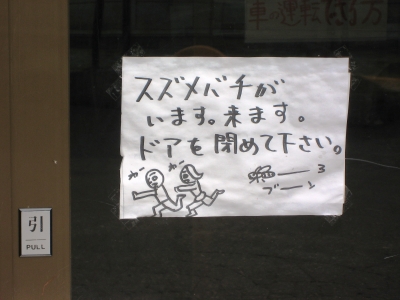 スズメバチが
います。来ます。
ドアを閉めて下さい。
ブーン
引
PULL